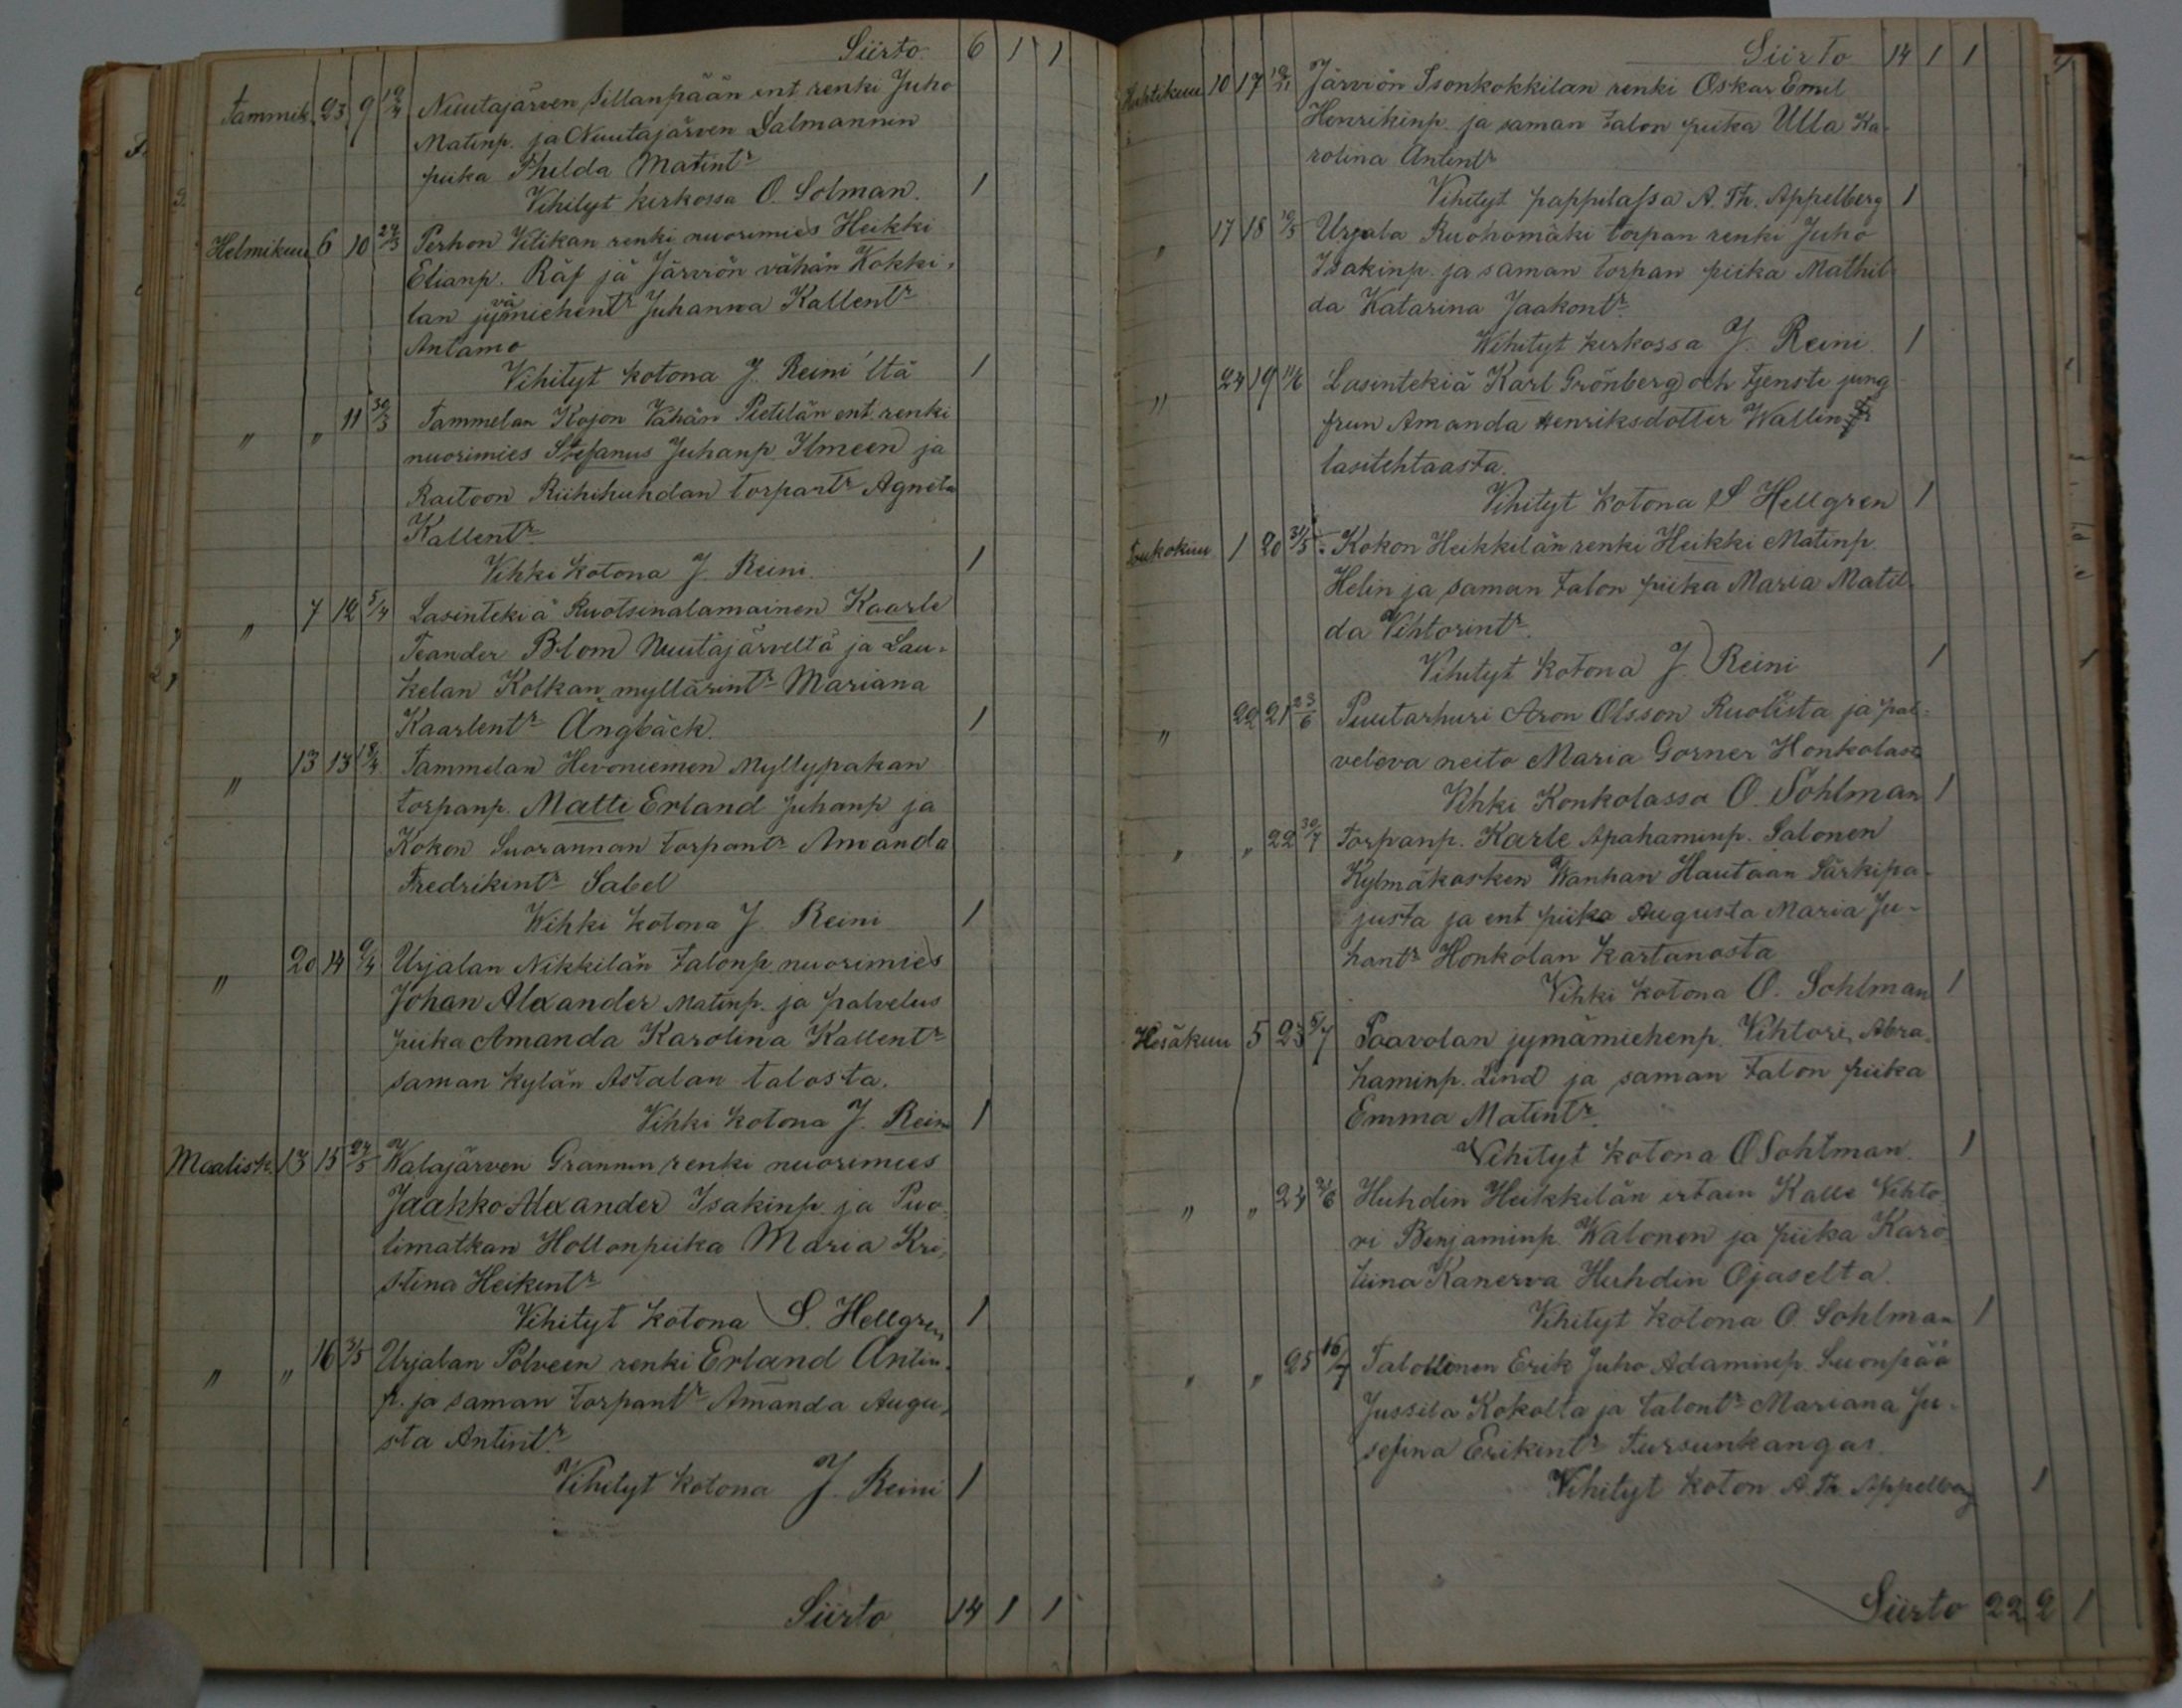 Siirto 6 1 1
Tammik. 23 9 Nuutajärven Sillanpään ent renki Juho
Matinp. ja Nuutajärven Salmannen
piika Thilda Matintr
Vihityt kirkossa O. Solman. 1
Helmikuu 6 10 Perhon Vilikan renki nuorimies Heikki
Elianp. Räf ja Järviön vähän Kokki-
lan jyvämiehentr Juhanna Kallentr
Antamo
Vihityt kotona J. Reini'ltä 1
" " 11 30/3 Tammelan Kojon Vähän Pietilän ent. renki
nuorimies Stefanus Juhanp Ilmeen ja
Raitoon Riihihuhdan torpantr Agneta
Kallentr
Vihki kotona J. Reini. 1
" 7 12 5/4 Lasintekiä Ruotsinalamainen Kaarle
Teander Blom Nuutajärveltä ja Lau-
kelan Kolkan myllärintr Mariana
Kaarlentr Ängbäck. 1
" 13 13 18/4 Tammelan Hevoniemen Myllypakan
torpanp. Matti Erland Juhanp ja
Kokon Suorannan torpantr Amanda
Fredrikintr Sabel
Wihki kotona J. Reini 1
" 20 14 Urjalan Nikkilän talonp nuorimies
Johan Alexander Matinp. ja palvelus
piika Amanda Karolina Kallentr
saman kylän Astalan talosta.
Vihki kotona J. Rein 1
Maalisk. 13 15 27/5 Walajärven Grannin renki nuorimies
Jaakko Alexander Isakinp. ja Puo-
limatkan Hollonpiika Maria Kri-
stina Heikintr
Vihityt kotona S. Hellgren 1
" " 16 3/5 Urjalan Polveen renki Erland Antin-
p. ja saman torpantr Amanda Augu-
sta Antintr.
Vihityt kotona J. Reini 1
Siirto 14 1 1
Siirto 14 1 1
Huhtikuu 10 17 Järviön Isonkokkilan renki Oskar Emil
Henrikinp. ja saman talon piika Ulla Ka-
rolina Antintr
Vihityt pappilassa A. Th. Appelberg 1
" 17 18 10/5 Urjala Ruohomäki torpan renki Juho
Isakinp. ja saman torpan piika Mathil-
da Katarina Jaakontr.
Wihityt kirkossa J. Reini. 1
" 24 19 11/6 Lasintekiä Karl Grönberg och tjenste jung
frun Amanda Henriksdotter Wallin
lasitehtaasta.
Vihityt kotona S Hellgren 1
Toukokuu 1 20 31/5 Kokon Heikkilän renki Heikki Matinp
Helin ja saman talon piika Maria Matil-
da Vihtorintr.
Vihityt kotona J. Reini 1
" 22 21 23/6 Puutarhuri Aron Olsson Ruolista ja pal-
veleva neito Maria Gorner Honkolasta
Vihki Konkolassa O. Sohlman 1
" " 22 30/7 Torpanp. Karle Apahaminp. Salonen
Kylmäkosken Wanhan Hautaan Särkipa-
justa ja ent piika Augusta Maria Ju-
hantr Honkolan kartanosta
Vihki kotona O. Sohlman 1
Kesäkuu 5 23 5/7 Paavolan jymämiehenp. Vihtori Abra-
haminp. Lind ja saman talon piika
Emma Matintr.
Vihityt kotona O Sohlman. 1
" " 24 2/6 Huhdin Heikkilän irtain Kalle Vihto-
ri Benjaminp. Walonen ja piika Karo-
liina Kanerva Huhdin Ojaselta.
Vihityt kotona O. Sohlman 1
" " 25 16/7 Talollinen Erik Juho Adaminp. Suonpää
Jussila Kokolta ja talontr Mariana Ju-
sefina Erikintr Tursunkangas.
Vihityt koton A. Th. Appelberg 1
Siirto 22 2 1